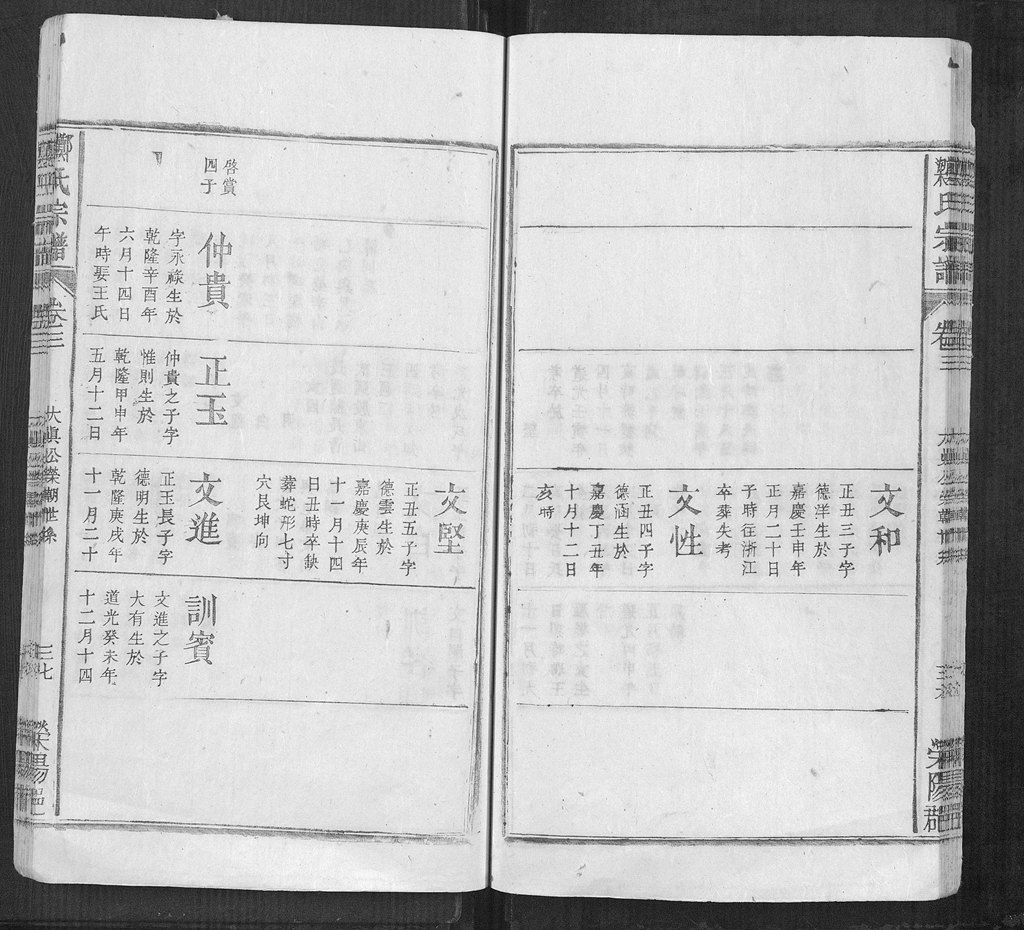 氏宗譜
卷三
文和
正丑三子字
德洋生於
嘉慶壬申年
正月二十日
子時往浙江
卒葬失考
文性
正丑四子字
德涵生於
嘉慶丁丑年
十月十二日
亥時
文堅
正丑五子字
德雲生於
嘉慶庚辰年
十一月十四
日丑時卒缺
葬蛇形七寸
穴艮坤向
啓賞
四子
仲貴
字永祿生於
乾隆辛酉年
六月十四日
午時娶王氏
正玉
仲貴之子字
惟則生於
乾隆甲申年
五月十二日
文進
正玉長子字
德明生於
乾隆庚戌年
十一月二十
訓賓
文進之子字
大有生於
道光癸未年
十二月十四
鄭氏宗譜
卷三
三七